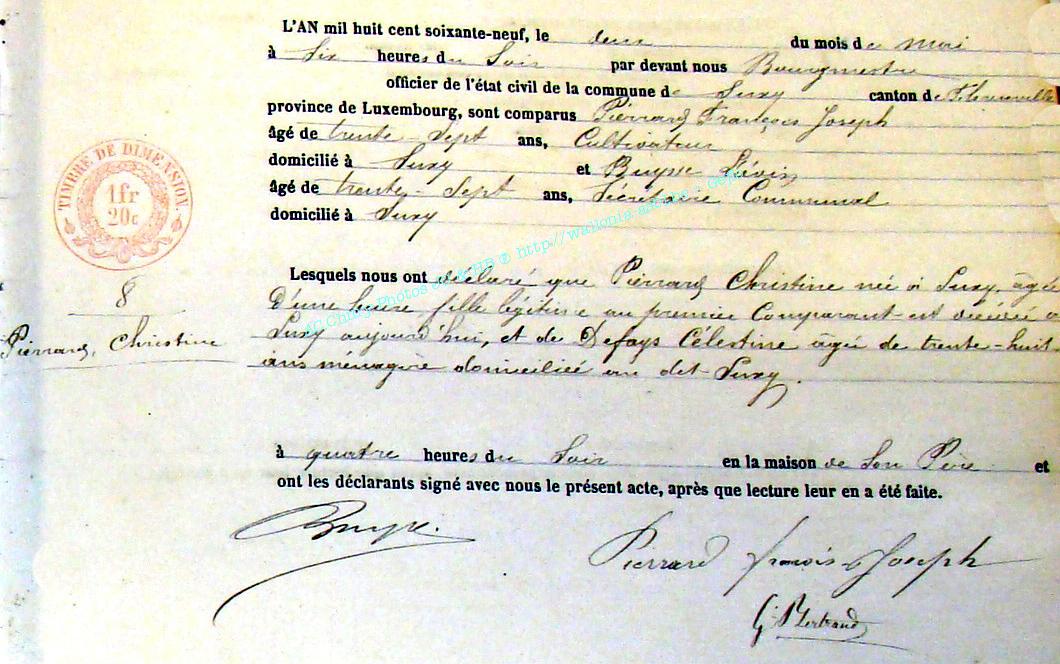 L'AN mil huit cent soixante-neuf, le deux du mois de Mai
à Six heures du Soir par devant nous Bourgmestre
officier de l'état civil de la commune de Suxy canton de Florenville
province de Luxembourg, sont comparus Pierrard François Joseph
âgé de trente-Sept ans, Cultivateur
domicilié à Suxy et Buysse Liévin
âgé de trente-Sept ans, Sécrétaire Communal
domicilié à Suxy
TIMBRE DE DIMENSION
1fr
20c
8
Pierrard, Christine
Lesquels nous ont déclaré que Pierrard Christine née à Suxy, agée
D'une heure fille légitime au premier Comparant est décédée a
Suxy aujourd'hui, et de Defays Célestine agée de trente-huit
ans ménagère domiciliée au dit Suxy.
à quatre heures du Soir en la maison de Son Père et
ont les déclarants signé avec nous le présent acte, après que lecture leur en a été faite.
Buysse.
Pierrard françois Joseph
G. Bertrand
Photos http://wallonie